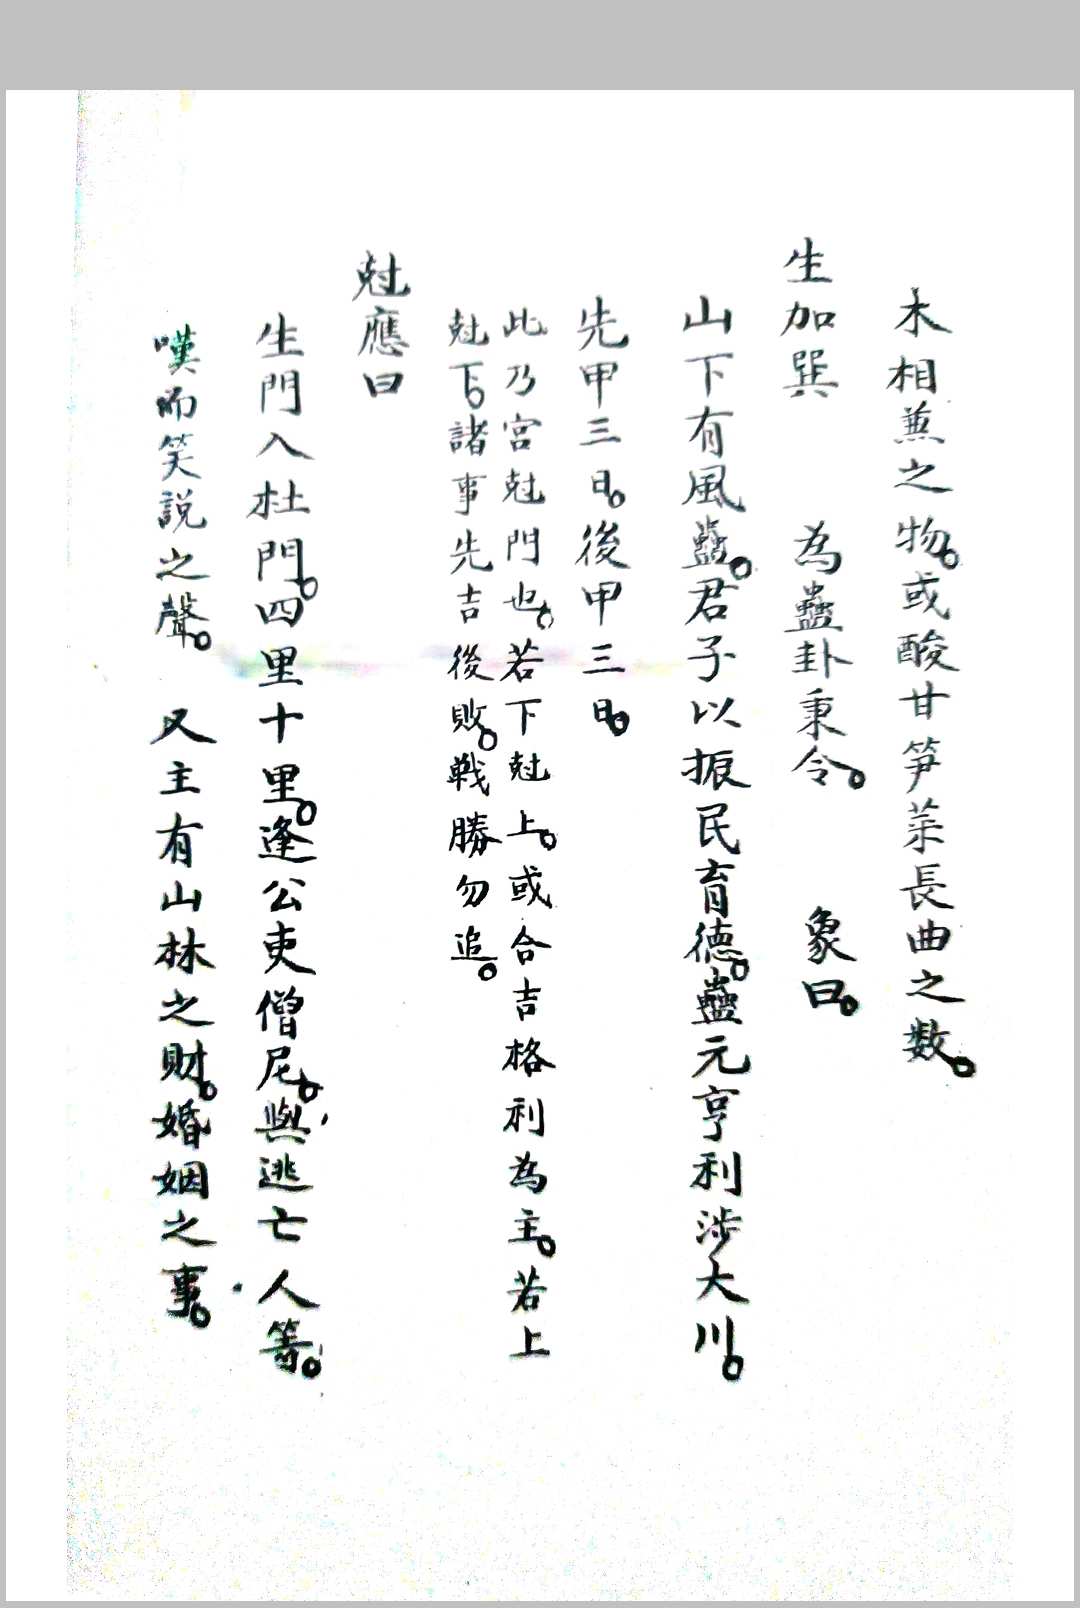 木相蕪之物。或酸甘笋菜長曲之数。
生加巽　為蠱卦秉令。　象曰。
山下有風蠱。君子以振民育德。蠱元亨利涉大川。
先甲三日。後甲三日。
此乃宮尅門也。若下尅上。或合吉格利為主。若上
尅下。諸事先吉後敗。戦勝勿追。
尅應曰
生門入杜門。四里十里。逢公吏僧尼。與逃亡人等。
嘆而笑説之聲。又主有山林之財。婚姻之事。